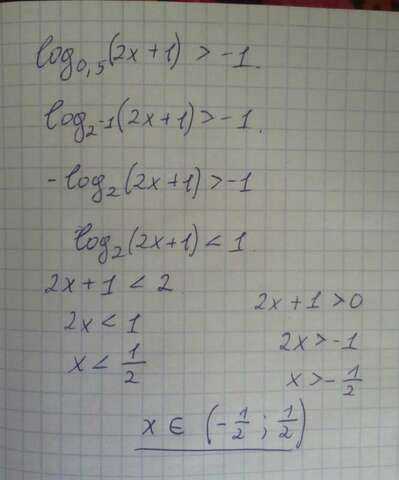 log₀,₅(2x+1) > -1.
log₂-1(2x+1) > -1.
-log₂(2x+1) > -1
log₂(2x+1) < 1.
2x+1 < 2
2x < 1
x < 1/2
2x+1 > 0
2x > -1
x > -1/2
x ∈ (-1/2 ; 1/2)